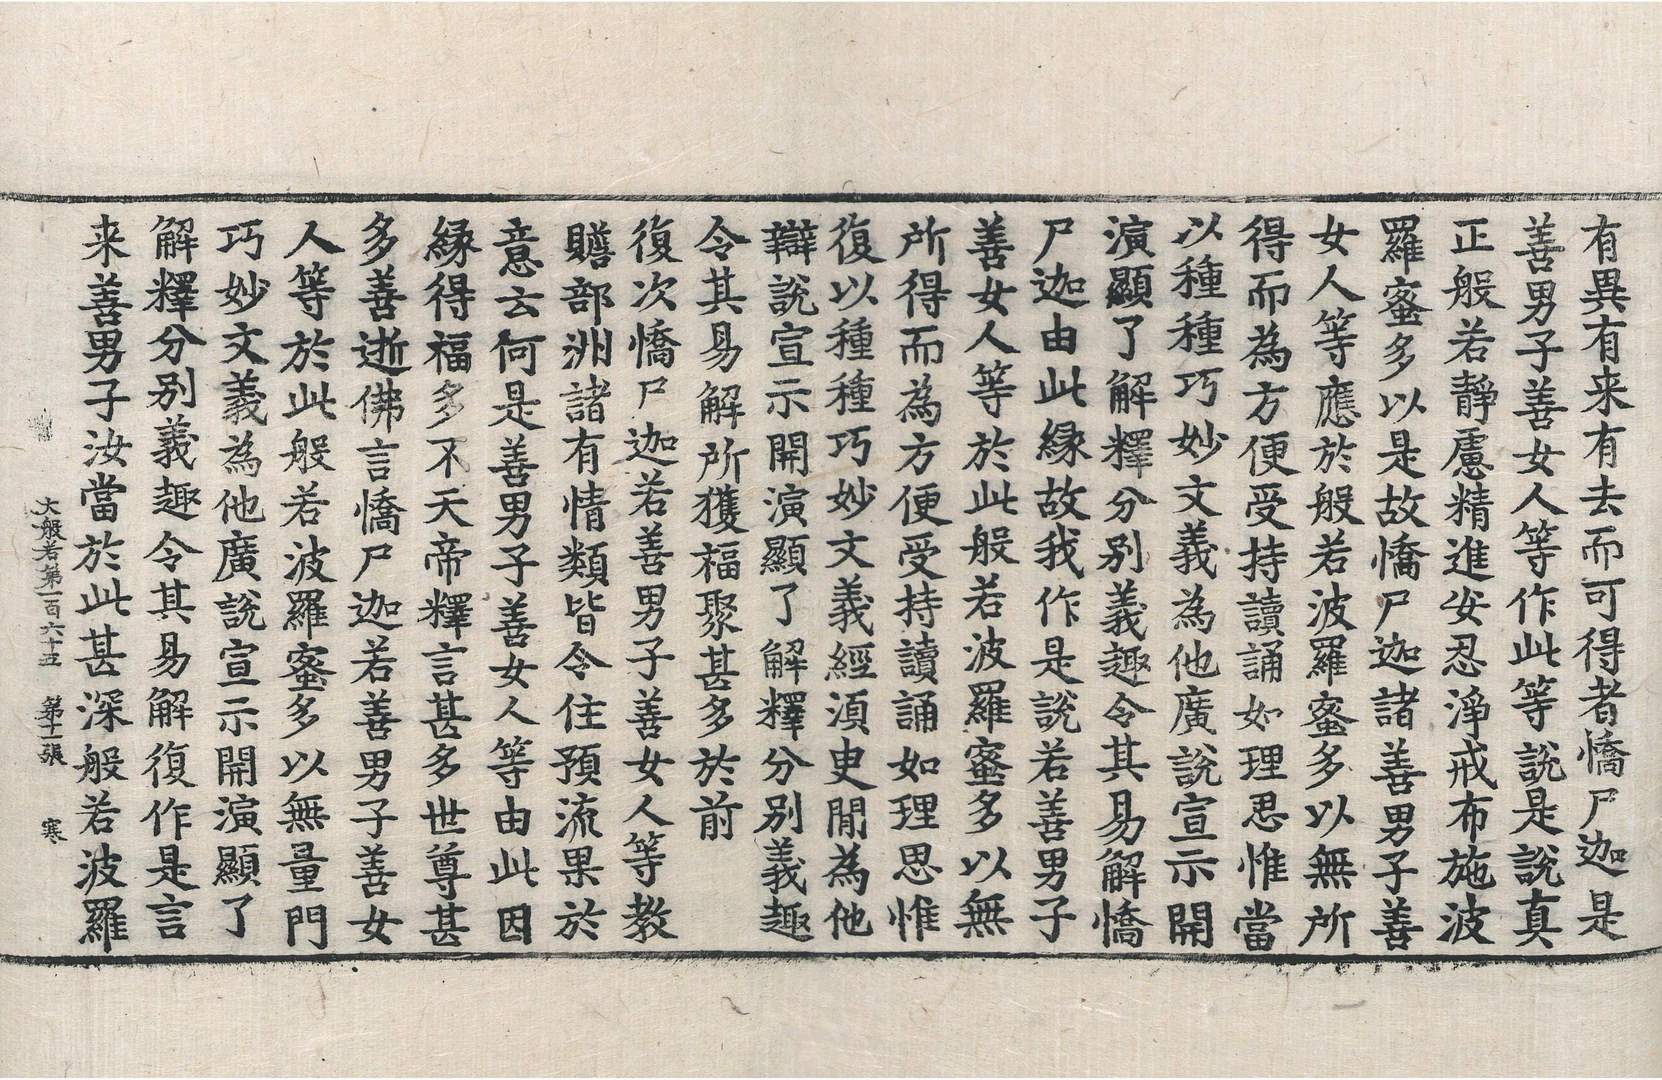 有異有来有去而可得者憍尸迦是
善男子善女人等作此等說是說真
正般若靜慮精進安忍淨戒布施波
羅蜜多以是故憍尸迦諸善男子善
女人等應於般若波羅蜜多以無所
得而為方便受持讀誦如理思惟當
以種種巧妙文義為他廣說宣示開
演顯了解釋分別義趣令其易解憍
尸迦由此縁故我作是說若善男子
善女人等於此般若波羅蜜多以無
所得而為方便受持讀誦如理思惟
復以種種巧妙文義經須臾閒為他
辯說宣示開演顯了解釋分別義趣
令其易解所獲福聚甚多於前
復次憍尸迦若善男子善女人等教
贍部洲諸有情類皆令住預流果於
意云何是善男子善女人等由此因
縁得福多不天帝釋言甚多世尊甚
多善逝佛言憍尸迦若善男子善女
人等於此般若波羅蜜多以無量門
巧妙文義為他廣說宣示開演顯了
解釋分別義趣令其易解復作是言
来善男子汝當於此甚深般若波羅
大般若第一百六十五 第十一張 寒